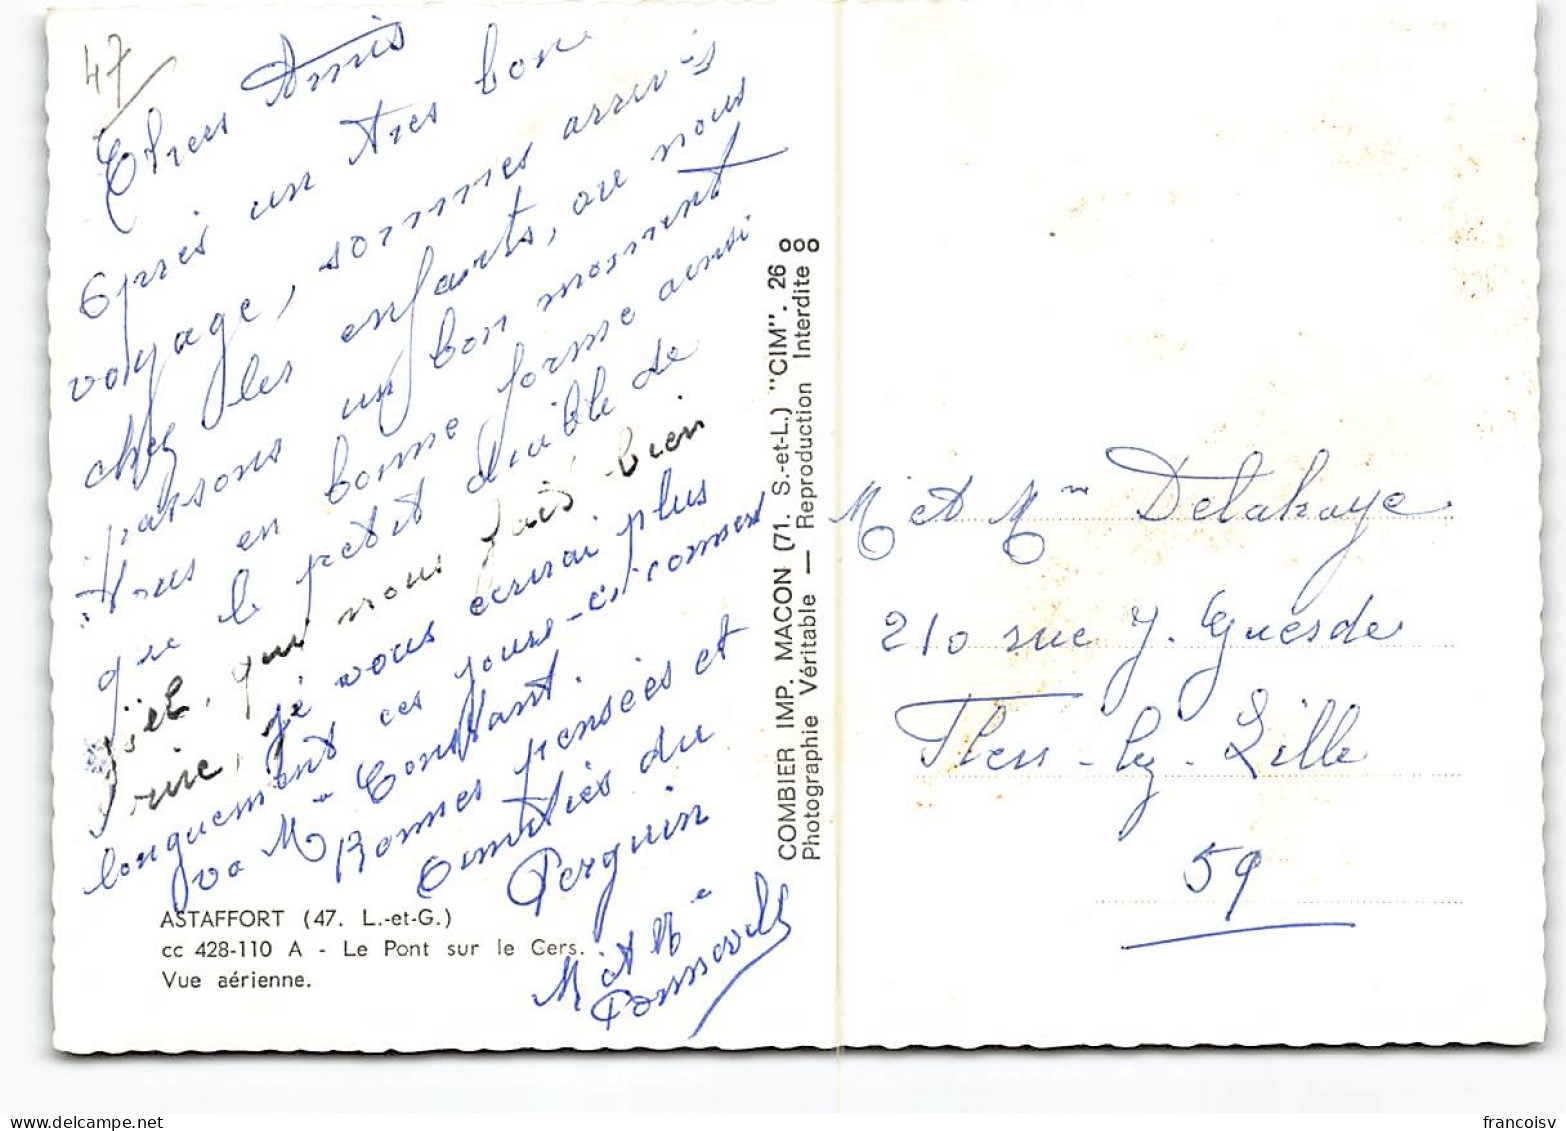 47
Chers Amis
Après un très bon
voyage, sommes arrivés
chez les enfants, ou nous
passons un bon moment
tous en bonne forme ainsi
que le petit diable de
Joël, qui nous fais bien
rire, je vous ecrirai plus
longuement ces jours-ci comment
va Mme Constant.
Bonnes pensées et
Amitiés du
Perquin
M et Me
ASTAFFORT (47. L.-et-G.)
cc 428-110 A - Le Pont sur le Gers.
Vue aérienne.
COMBIER IMP. MACON (71. S.-et-L.) "CIM". 26
Photographie Véritable — Reproduction Interdite
M et Mme Delahaye
210 rue J. Guesde
Flers-lez-Lille
59
francoisv